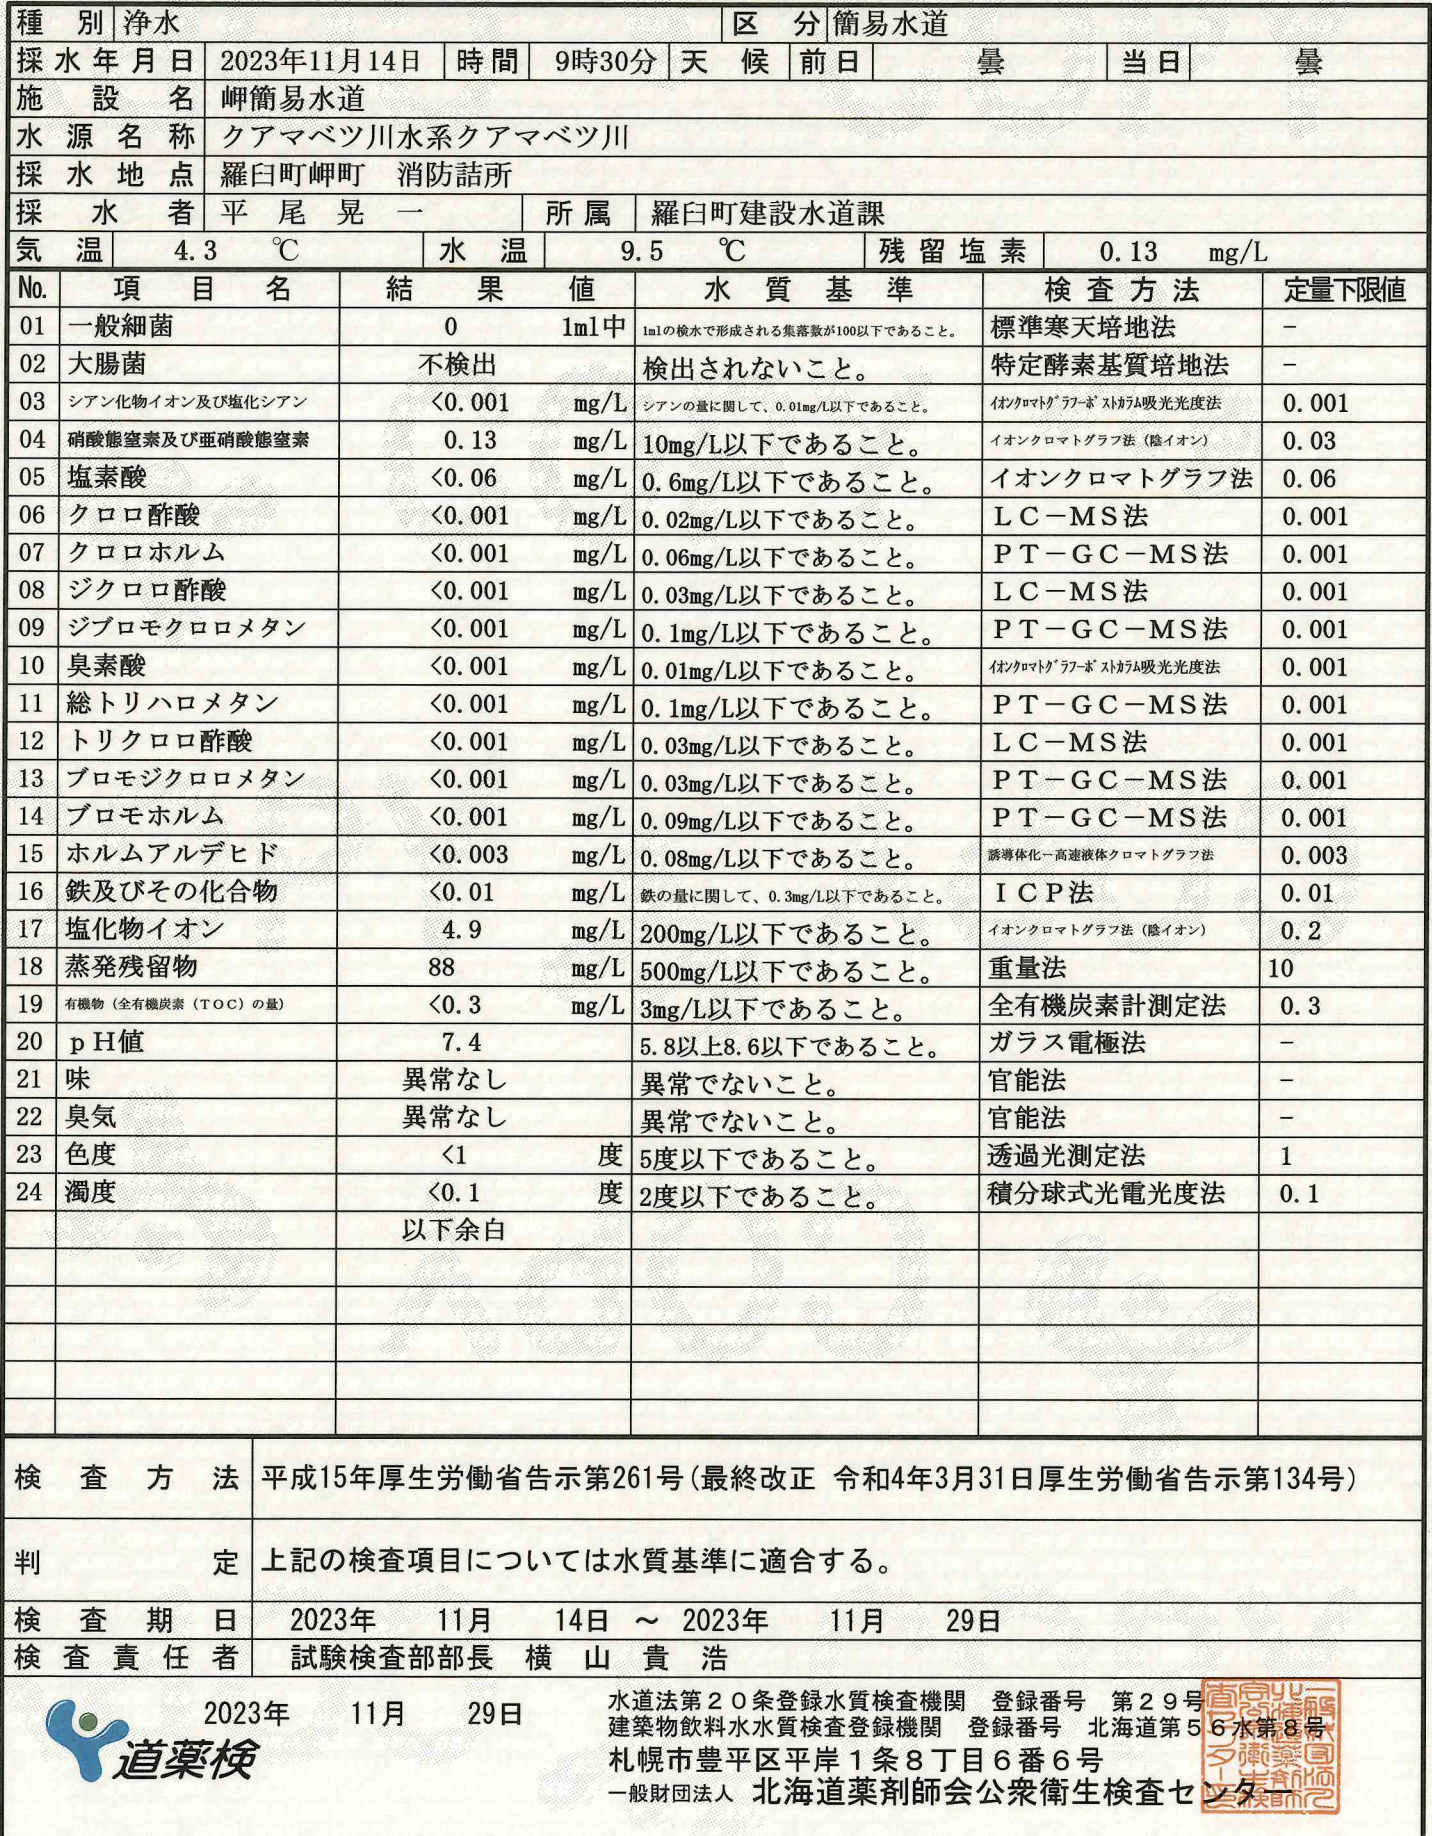 種別 浄水 区分 簡易水道
採水年月日 2023年11月14日 時間 9時30分 天候 前日 曇 当日 曇
施設名 岬簡易水道
水源名称 クアマベツ川水系クアマベツ川
採水地点 羅臼町岬町 消防詰所
採水者 平尾晃一 所属 羅臼町建設水道課
気温 4.3 ℃ 水温 9.5 ℃ 残留塩素 0.13 mg/L
No. 項目名 結果値 水質基準 検査方法 定量下限値
01 一般細菌 0 1ml中 1mlの検水で形成される集落数が100以下であること。 標準寒天培地法 −
02 大腸菌 不検出 検出されないこと。 特定酵素基質培地法 −
03 シアン化物イオン及び塩化シアン <0.001 mg/L シアンの量に関して、0.01mg/L以下であること。 イオンクロマトグラフ-ポストカラム吸光光度法 0.001
04 硝酸態窒素及び亜硝酸態窒素 0.13 mg/L 10mg/L以下であること。 イオンクロマトグラフ法（陰イオン） 0.03
05 塩素酸 <0.06 mg/L 0.6mg/L以下であること。 イオンクロマトグラフ法 0.06
06 クロロ酢酸 <0.001 mg/L 0.02mg/L以下であること。 ＬＣ−ＭＳ法 0.001
07 クロロホルム <0.001 mg/L 0.06mg/L以下であること。 ＰＴ−ＧＣ−ＭＳ法 0.001
08 ジクロロ酢酸 <0.001 mg/L 0.03mg/L以下であること。 ＬＣ−ＭＳ法 0.001
09 ジブロモクロロメタン <0.001 mg/L 0.1mg/L以下であること。 ＰＴ−ＧＣ−ＭＳ法 0.001
10 臭素酸 <0.001 mg/L 0.01mg/L以下であること。 イオンクロマトグラフ-ポストカラム吸光光度法 0.001
11 総トリハロメタン <0.001 mg/L 0.1mg/L以下であること。 ＰＴ−ＧＣ−ＭＳ法 0.001
12 トリクロロ酢酸 <0.001 mg/L 0.03mg/L以下であること。 ＬＣ−ＭＳ法 0.001
13 ブロモジクロロメタン <0.001 mg/L 0.03mg/L以下であること。 ＰＴ−ＧＣ−ＭＳ法 0.001
14 ブロモホルム <0.001 mg/L 0.09mg/L以下であること。 ＰＴ−ＧＣ−ＭＳ法 0.001
15 ホルムアルデヒド <0.003 mg/L 0.08mg/L以下であること。 誘導体化−高速液体クロマトグラフ法 0.003
16 鉄及びその化合物 <0.01 mg/L 鉄の量に関して、0.3mg/L以下であること。 ＩＣＰ法 0.01
17 塩化物イオン 4.9 mg/L 200mg/L以下であること。 イオンクロマトグラフ法（陰イオン） 0.2
18 蒸発残留物 88 mg/L 500mg/L以下であること。 重量法 10
19 有機物（全有機炭素（ＴＯＣ）の量） <0.3 mg/L 3mg/L以下であること。 全有機炭素計測定法 0.3
20 ｐＨ値 7.4 5.8以上8.6以下であること。 ガラス電極法 −
21 味 異常なし 異常でないこと。 官能法 −
22 臭気 異常なし 異常でないこと。 官能法 −
23 色度 <1 度 5度以下であること。 透過光測定法 1
24 濁度 <0.1 度 2度以下であること。 積分球式光電光度法 0.1
以下余白
検査方法 平成15年厚生労働省告示第261号(最終改正 令和4年3月31日厚生労働省告示第134号)
判定 上記の検査項目については水質基準に適合する。
検査期日 2023年 11月 14日 ～ 2023年 11月 29日
検査責任者 試験検査部部長 横山貴浩
2023年 11月 29日
道薬検
水道法第２０条登録水質検査機関 登録番号 第２９号
建築物飲料水水質検査登録機関 登録番号 北海道第５６水第８号
札幌市豊平区平岸１条８丁目６番６号
一般財団法人 北海道薬剤師会公衆衛生検査センター